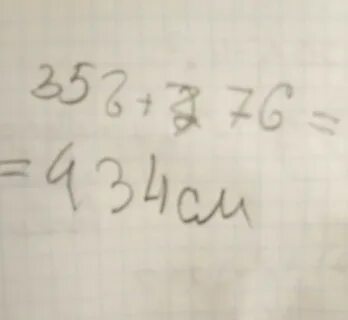 358+276=
=934см